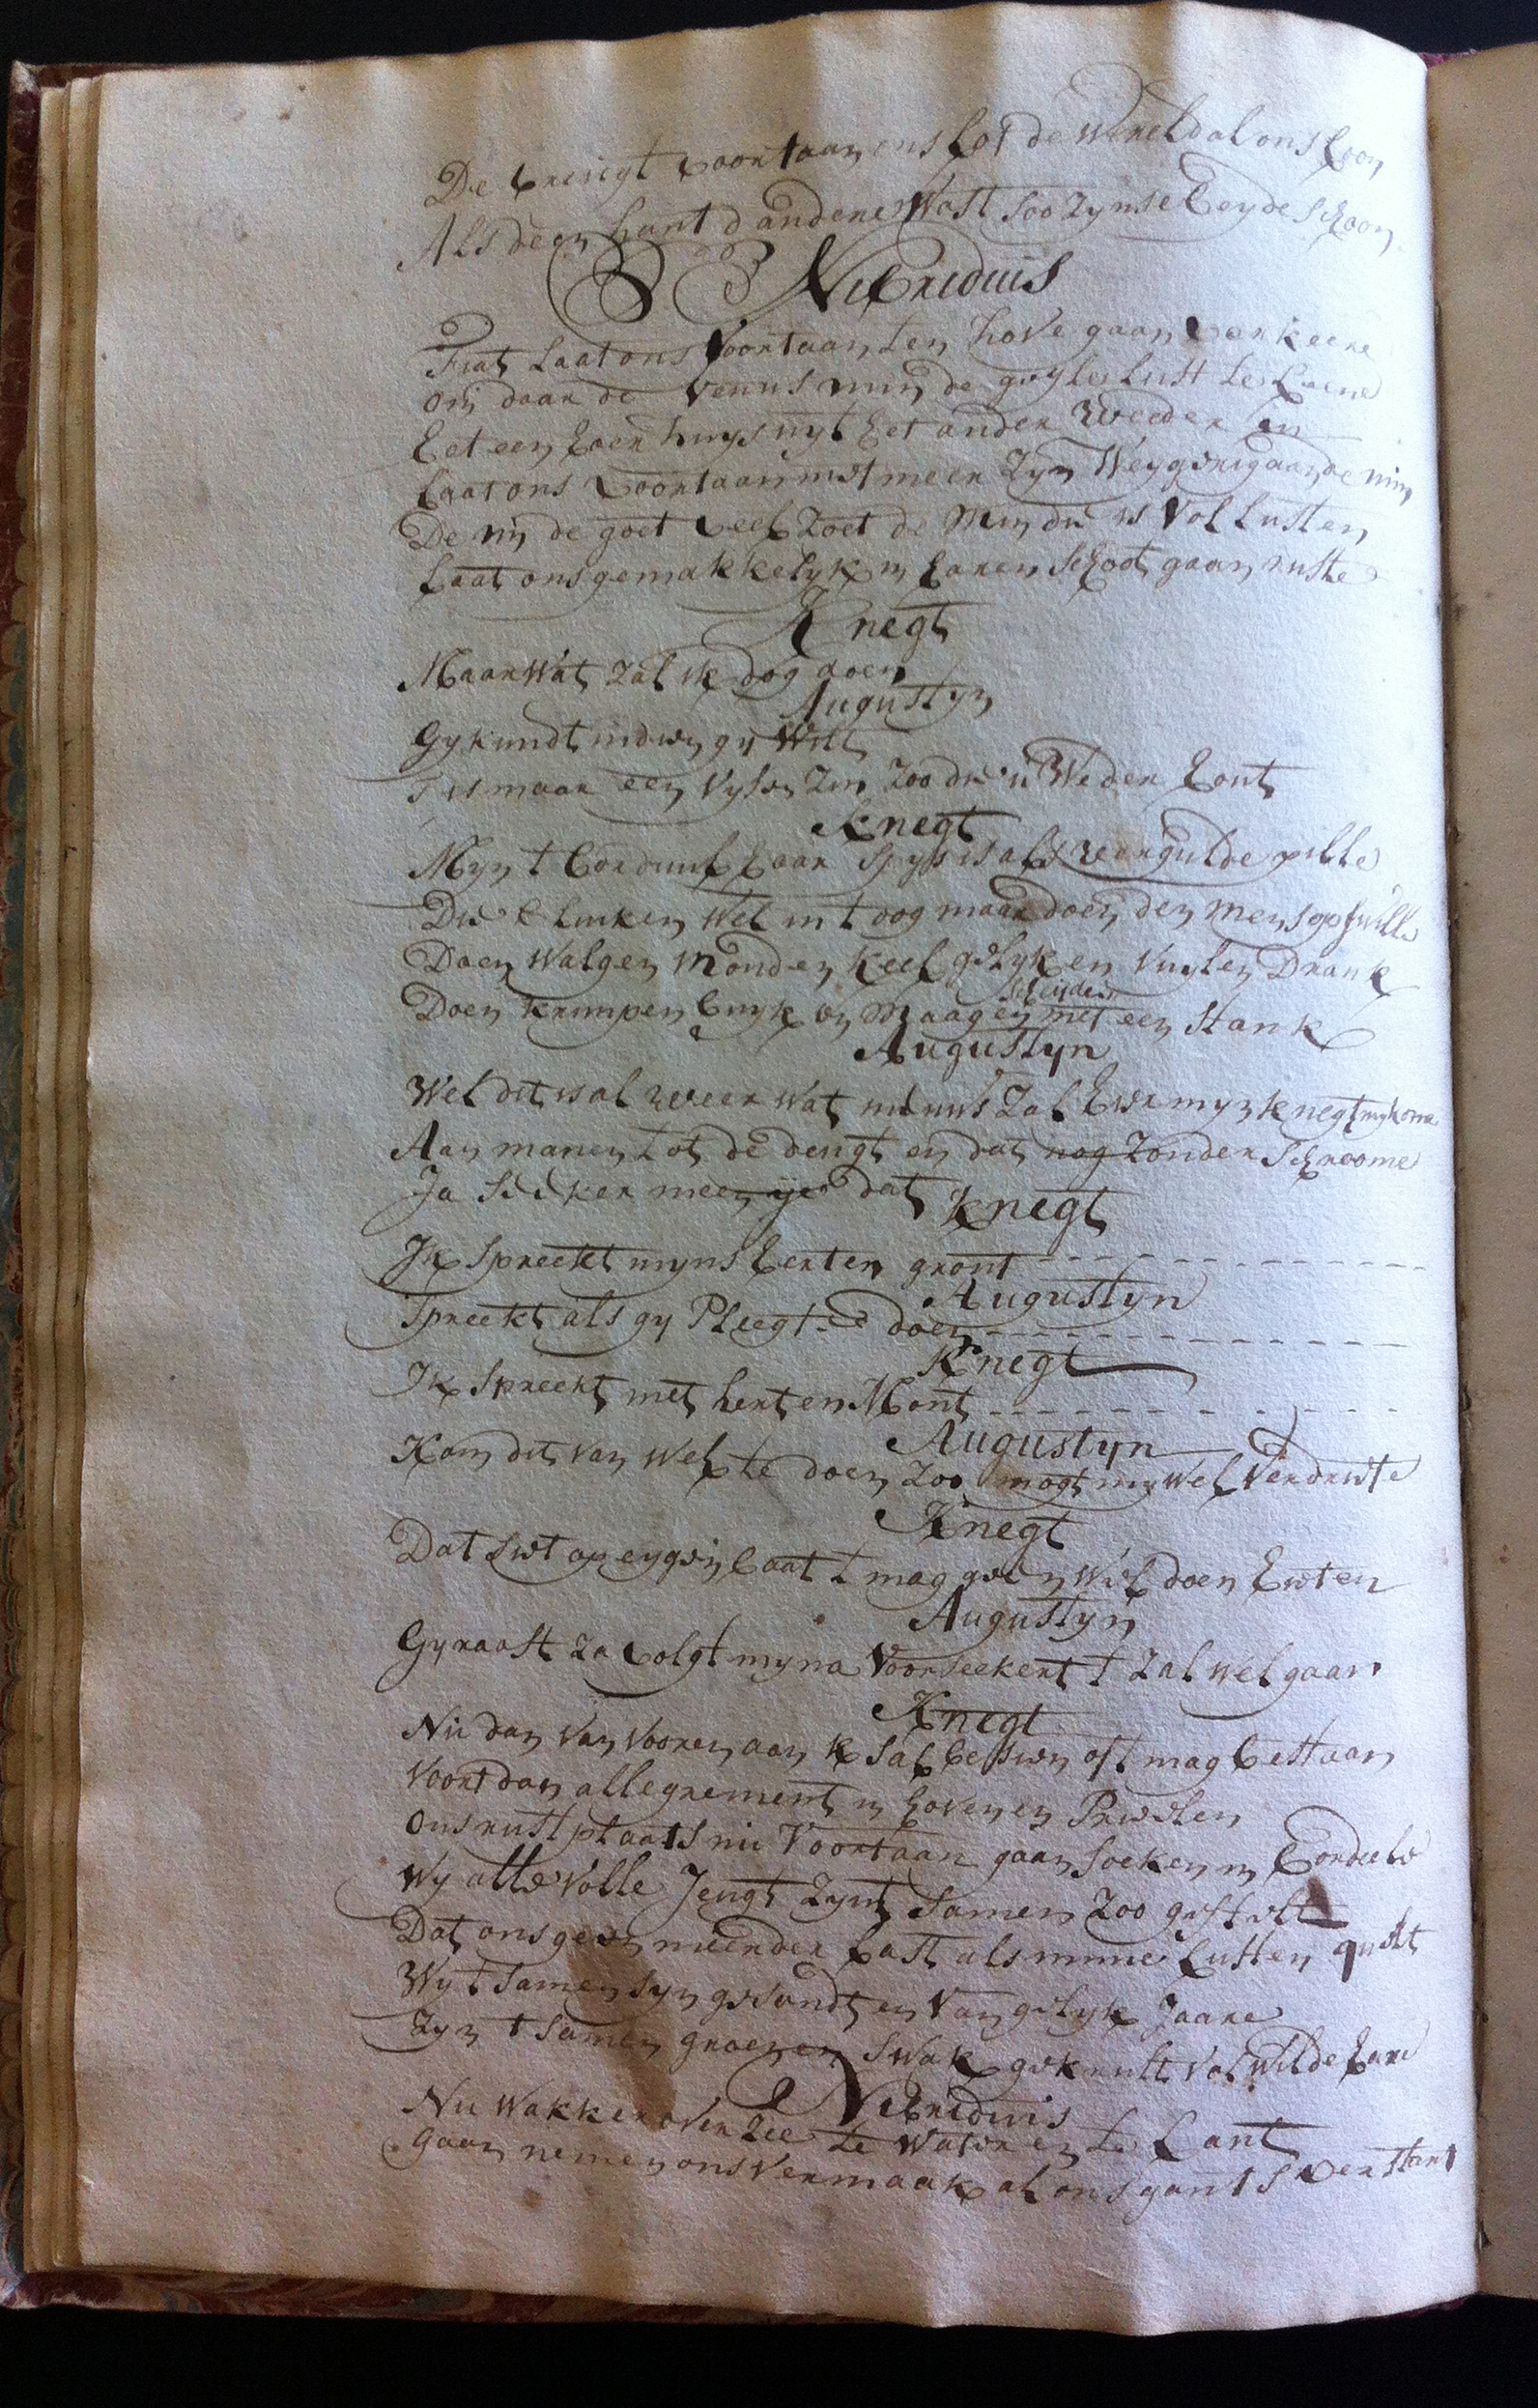 De brengt voortaan ons tot de wereld al ons loon
Als deen hant d andere wast soo zynse beyde schoon
Nebridius
Fiat laat ons voortaan ten hove gaan verkeere
om daar de Venus min de geyle lust te leeren
het een hoer huys uyt het ander weeder in
laat ons voortaan niet meer zyn weygerig aan de min
De min de goet veel zoet de min die is vol lusten
laat ons gemakkelyk in haren schoot gaan ruste
Knegt
Maar wat zal ik dog doen
Augustyn
Gy kundt indien gy wilt
t is maar een vysen zin zoo die u weder hout
Knegt
Myn t bordeel haar spys is als vergulde pille
Die blinken wel in t oog maar doen den mens
Doen walgen mond en keel gelyk en vuylen Drank
Doen krimpen buyk en maag en scheyden met een stank
Augustyn
Wel dit is al weer wat nieuws zal hier myn knegt my kome
Aan manen tot de deugt en dat nog zonder schroome
Ja seeker meen je dat
Knegt
Ik spreekt myns herten gront
Augustyn
Spreekt als gy pleegt te doen
Knegt
Ik spreekt met hert en Mont
Augustyn
Kom dit van wel te doen zoo mogt my wel verdriete
Knegt
Dat siet op eygen baat t mag geen wel doen hieten
Augustyn
Gy raast za volgt my na voorseekert t zal wel gaan
Knegt
Nu dan van vooren aan k sal besien oft mag bestaan
Voort dan allegrement in hoven en Prieelen
Ons rust plaats nu voortaan gaan soeken in bordeele
Wy alle volle Jeugt zynt samen zoo gestelt
Dat ons geen meerder last als minne lusten quelt
Wy t samen syn gesondt en van gelyke Jaare
Zyn t samen groen en swak gekrult vol wilde hare
Nebridius
Nu wakker over zee te water en te lant
Gaan nemen ons vermaak al ons gants verstant